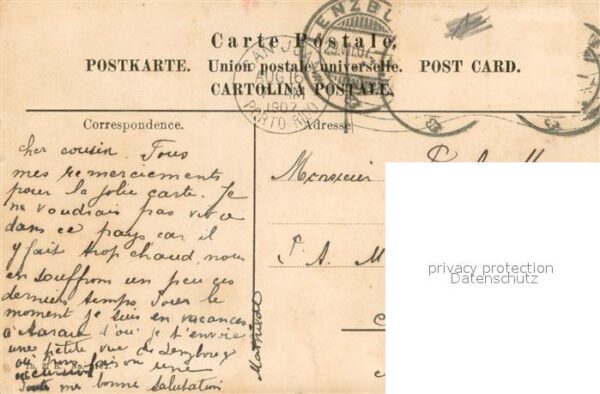 ENZBU
29.VII.07
SAN JUAN
AUG 16
1907
PORTO RICO
Carte Postale.
POSTKARTE. Union postale universelle. POST CARD.
CARTOLINA POSTALE.
Correspondence.
Adresse
cher cousin. Tous
mes remerciements
pour la jolie carte. Je
ne voudrais pas vivre
dans ce pays car il
y fait trop chaud, nous
en souffrons un peu ces
derniers temps. Pour le
moment je suis en vacances
à Aarau d'où je t'envoie
une petite vue de Lenzbourg
où nous faison une
Tous mes bonne salutation
Mathilde
Monsieur
P. A. M
privacy protection
Datenschutz